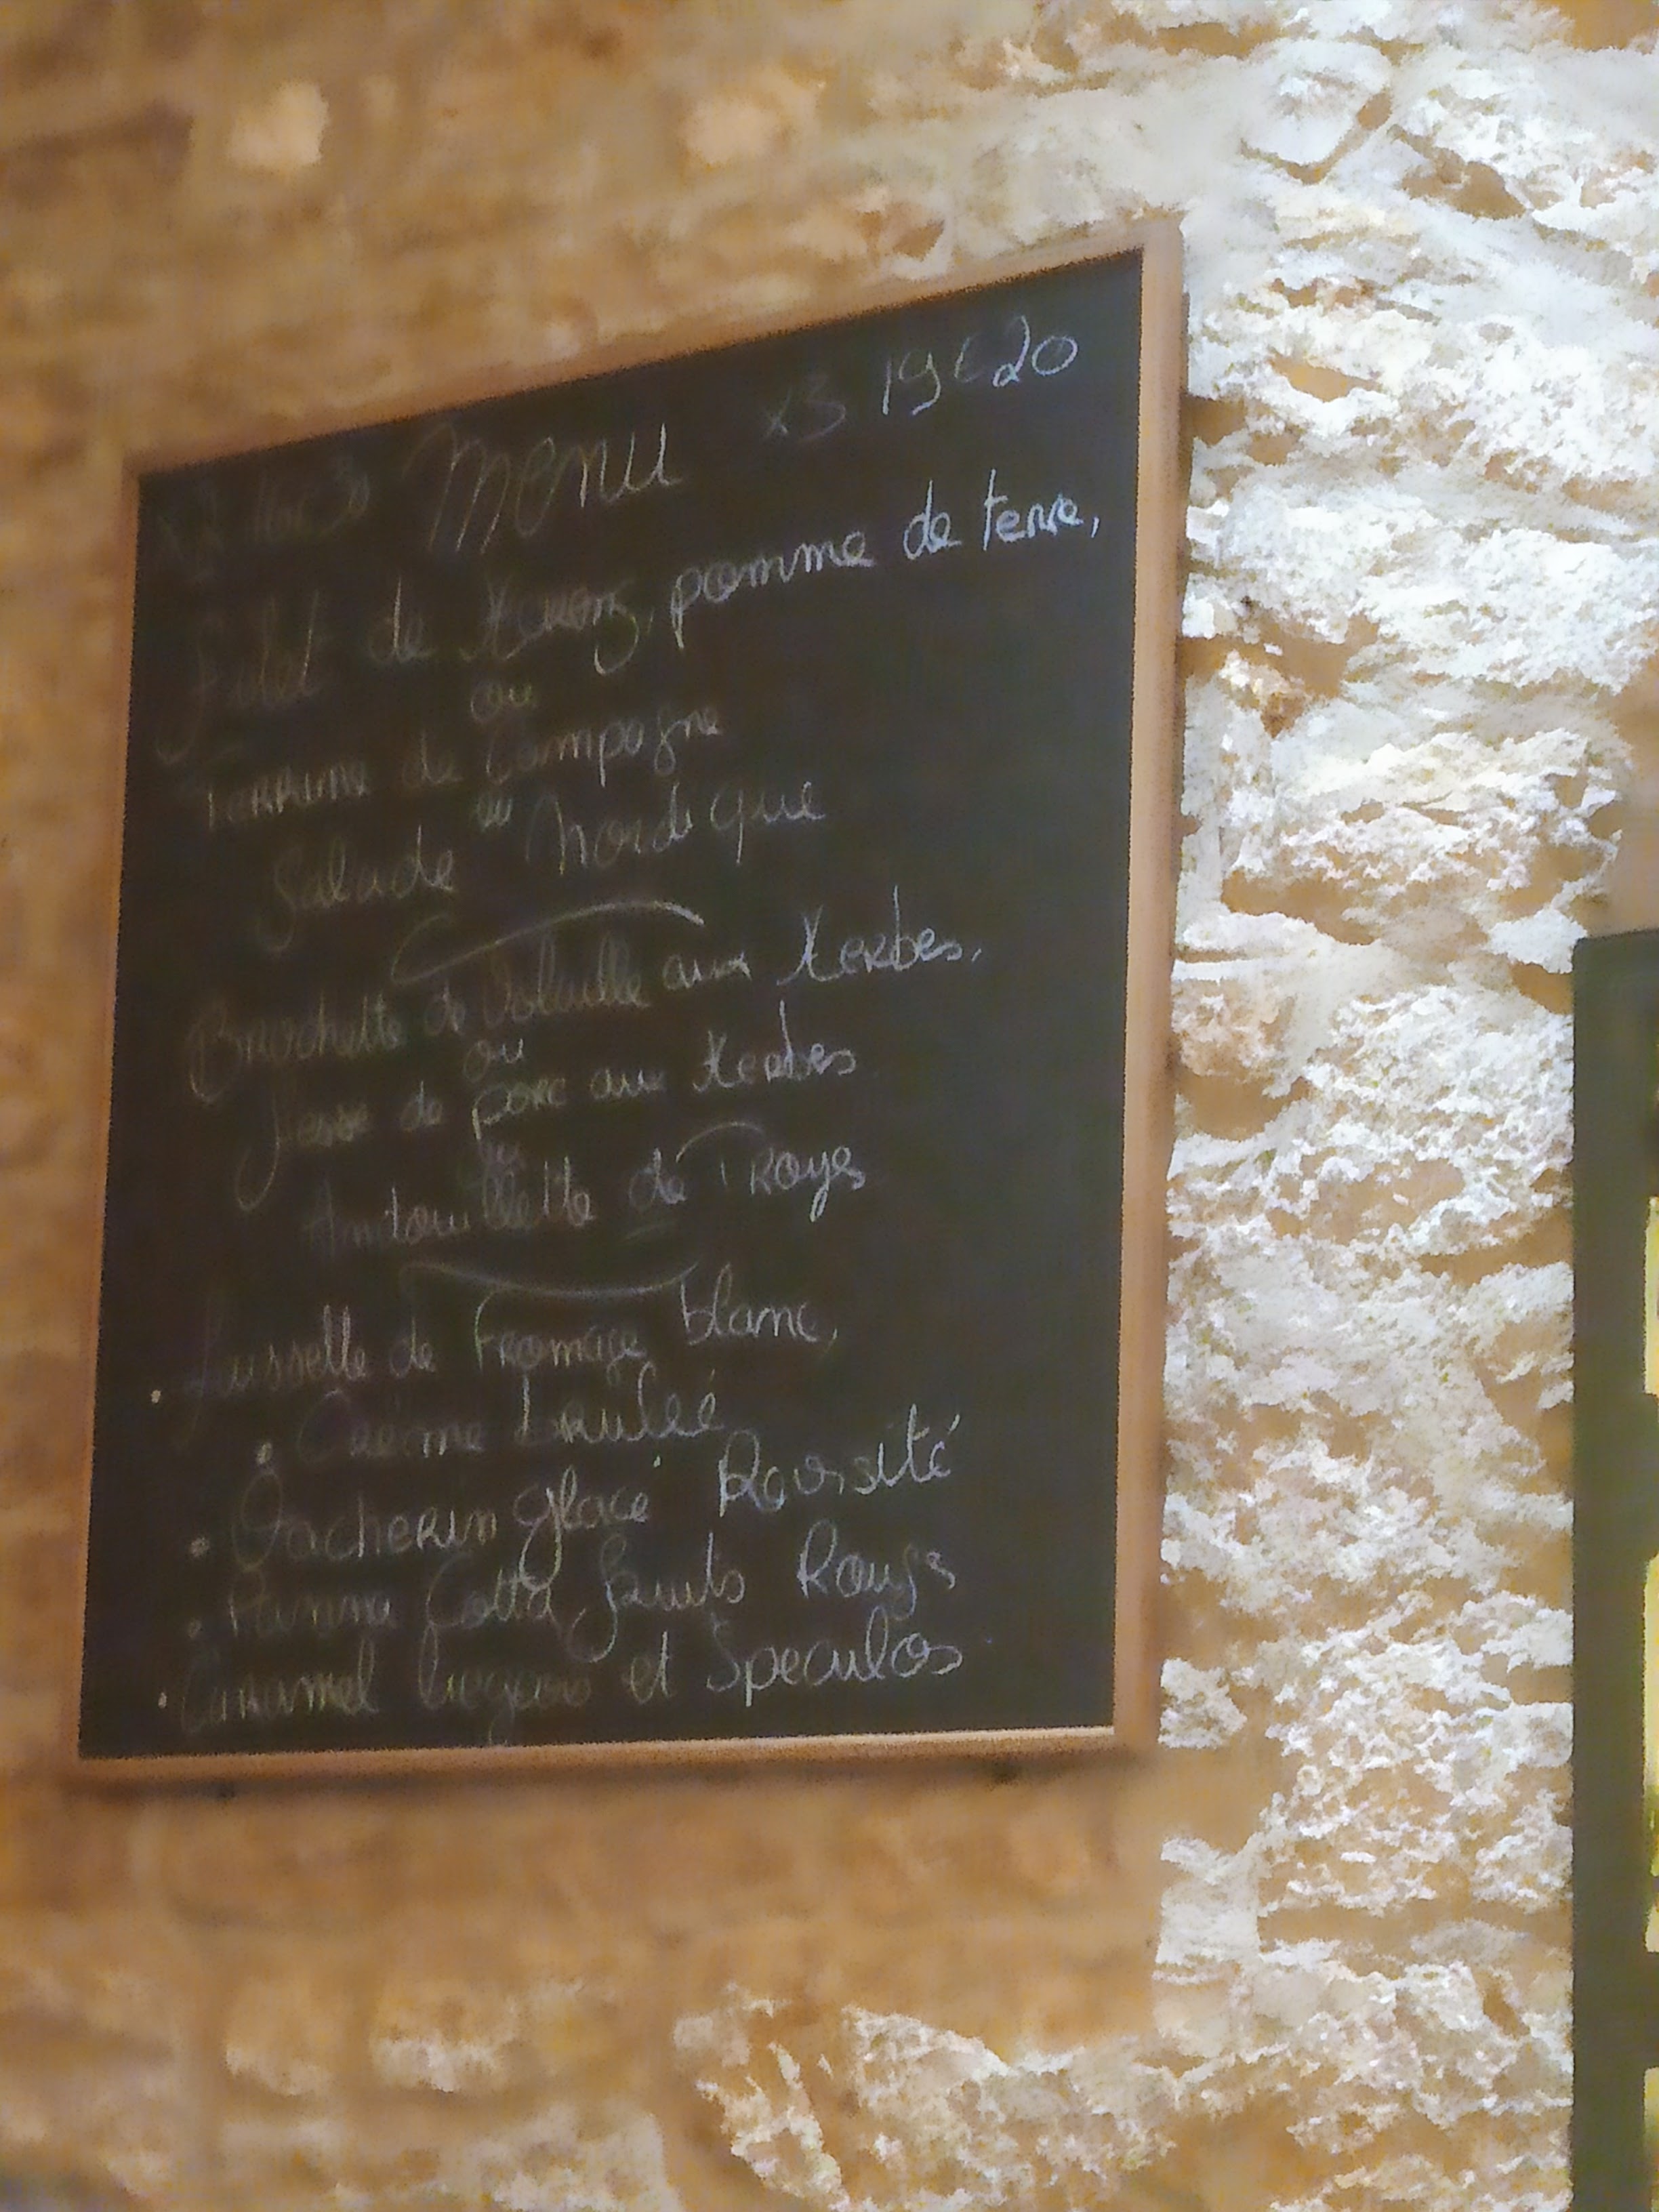 x2 16€30 Menu x3 19€20
Filet de Hareng, pomme de terre,
ou
Terrine de Campagne
ou
Salade Nordique
Brochette de Volaille aux Herbes,
ou
de porc aux Herbes
ou
Andouillette de Troyes
. Faisselle de Fromage blanc,
. Crème brulée
. Vacherin glacé
. Panna Cotta fruits Rouges
. Caramel liegeois et Speculos